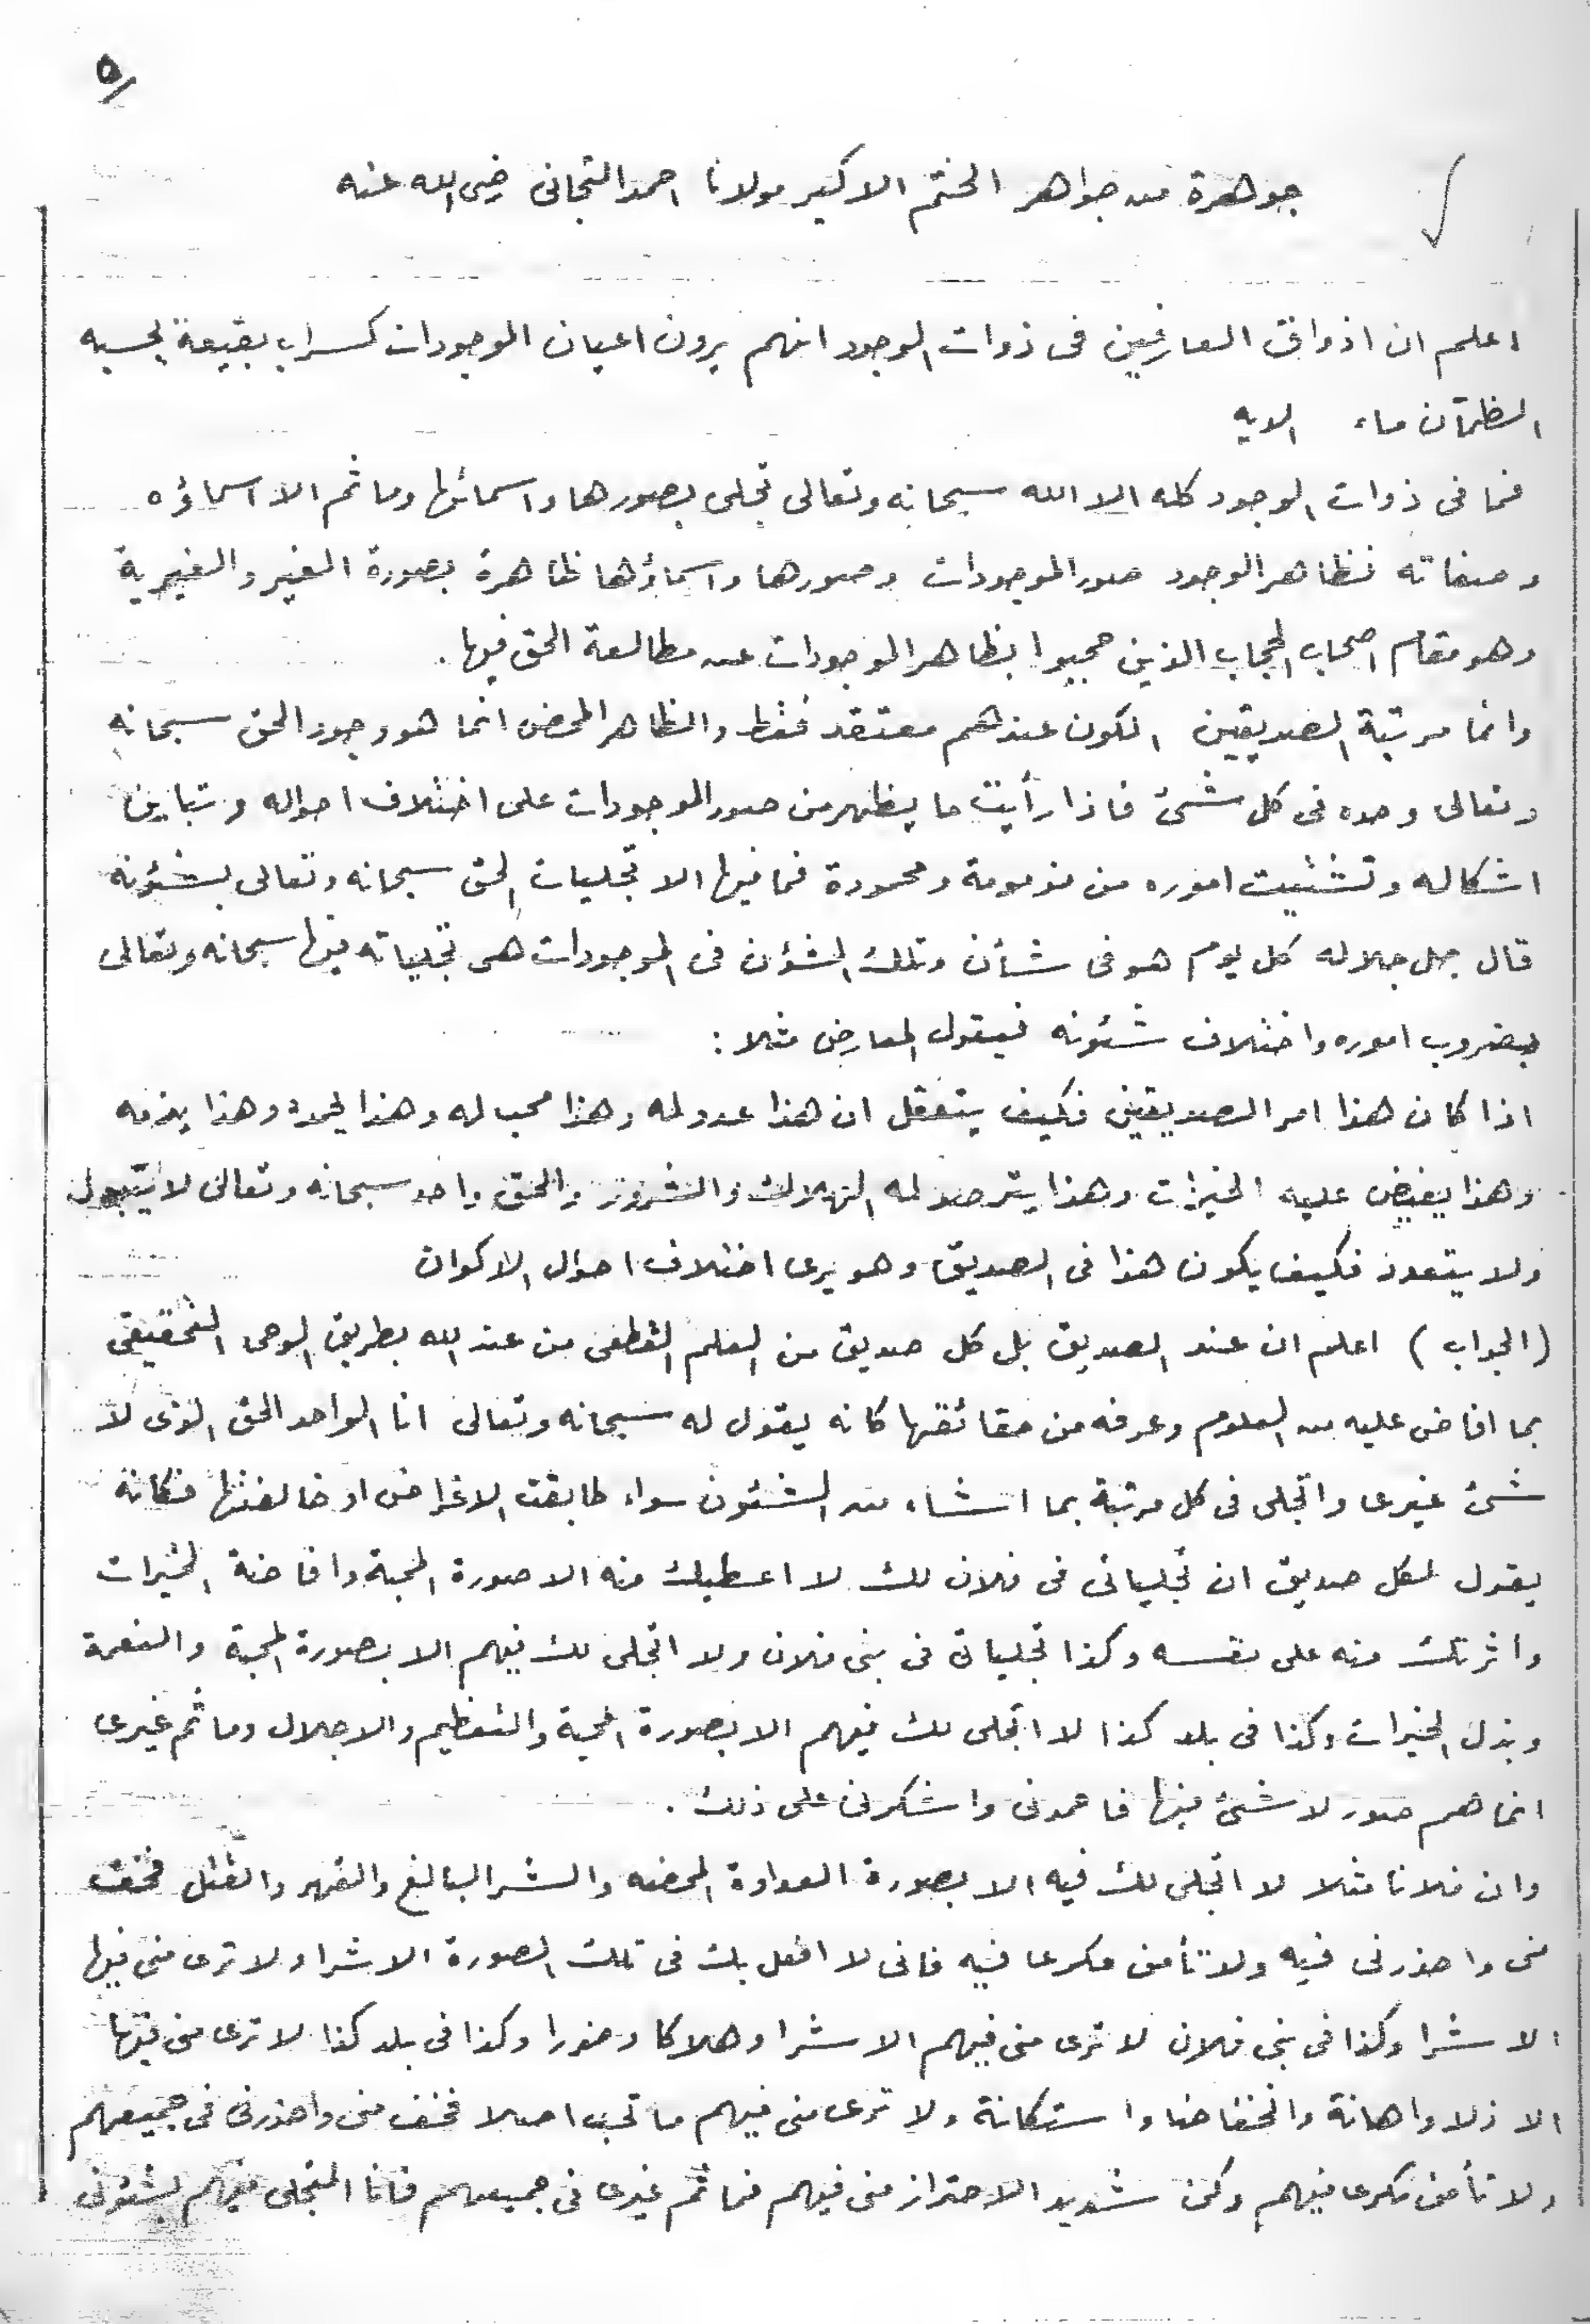 ٥
جوهرة من جواهر الختم الاكبر مولانا احمد التجانى رضى الله عنه
اعلم ان اذواق العارفين فى ذوات الوجود انهم يرون اعيان الموجودات كسراب بقيعة يحسبه
الظمآن ماء الايه
فما فى ذوات الوجود كله الا الله سبحانه وتعالى تجلى بصورها واسمائها وما ثم الا اسماؤه
وصفاته فظاهر الوجود صور الموجودات وصورها واسماؤها ظاهرة بصورة الغير والغيرية
وهو مقام اصحاب الحجاب الذين حجبوا بظاهر الموجودات عن مطالعة الحق فيها .
وانما مرتبة الصديقين الكون عندهم معتقد فقط والظاهر المحض انما هو وجود الحق سبحانه
وتعالى وحده فى كل شئ فاذا رأيت ما يظهر من صور الموجودات على اختلاف احواله وتباين
اشكاله وتشتيت اموره من مذمومة ومحمودة فما فيها الا تجليات الحق سبحانه وتعالى بشئونه
قال جل جلاله كل يوم هو فى شأن وتلك الشؤن فى الموجودات هى تجلياته فيها سبحانه وتعالى
بضروب اموره واختلاف شئونه فيقول المعارض مثلا :
اذا كان هذا امر الصديقين فكيف يتعقل ان هذا عدو له وهذا محب له وهذا يحمده وهذا يذمه
وهذا يفيض عليه الخيرات وهذا يترصد له الهلاك والشرور والحق واحد سبحانه وتعالى لا يتبدل
ولا يتعدد فكيف يكون هذا فى الصديق وهو يرى اختلاف احوال الاكوان
(الجواب) اعلم ان عند الصديق بل كل صديق من العلم القطعى من عند الله بطريق الوحى التحقيقى
بما افاض عليه من العلوم وعرفه من حقائقها كانه يقول له سبحانه وتعالى انا الواحد الحق الذى لا
شئ غيرى واتجلى فى كل مرتبة بما اشاء من الشئون سواء طابقت الاغراض او خالفتها فكانه
يقول لكل صديق ان تجلياتى فى فلان لك لا اعطيك منه الا صورة المحبة وافاضة الخيرات
وأثرتك منه على نفسه وكذا تجلياتى فى بنى فلان ولا اتجلى لك فيهم الا بصورة المحبة والنعمة
وبذل الخيرات وكذا فى بلد كذا لا اتجلى لك فيهم الا بصورة المحبة والتعظيم والاجلال وما ثم غيرى
انما هم صور لا شئ فيها فاحمدنى واشكرنى على ذلك .
وان فلانا مثلا لا اتجلى لك فيه الا بصورة العداوة المحضه والشر البالغ والقهر والقتل فخف
منى واحذرنى فيه ولا تأمن مكرى فيه فانى لا افعل بك فى تلك الصورة الا شرا ولا ترى منى فيها
الا شرا وكذا فى بنى فلان لا ترى منى فيهم الا شرا وهلاكا وضررا وكذا فى بلد كذا لا ترى منى فيها
الا ذلا واهانة وانخفاضا واستكانة ولا ترى منى فيهم ما تحب اصلا فخف منى واحذرنى فى جميعهم
ولا تأمن مكرى فيهم وكن شديد الاحتراز منى فيهم فما ثم غيرى فى جميعهم فانا المتجلى فيهم بشئونى